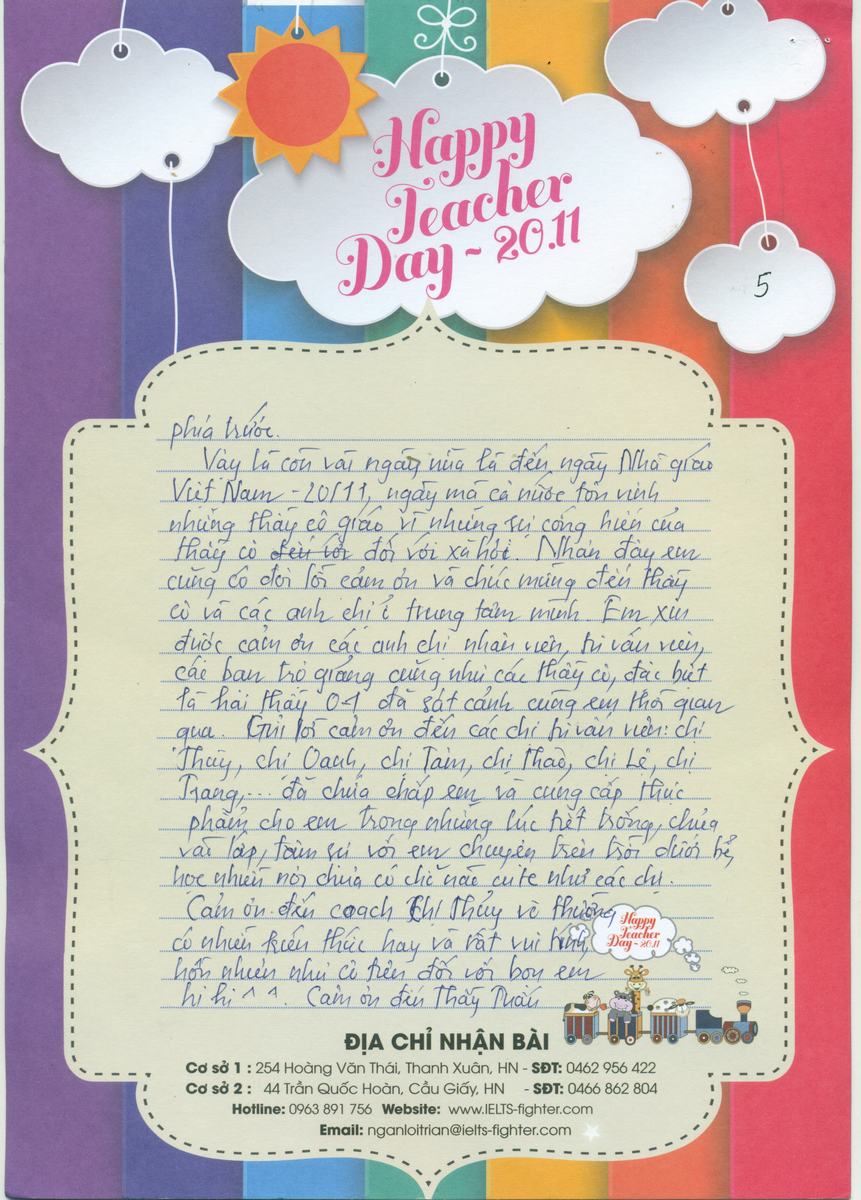 Happy
Teacher
Day ~ 20.11
5
phía trước.
Vậy là còn vài ngày nữa là đến ngày Nhà giáo
Việt Nam - 20/11, ngày mà cả nước tôn vinh
những thầy cô giáo vì những sự cống hiến của
thầy cô đối với xã hội. Nhân đây em
cũng có đôi lời cảm ơn và chúc mừng đến thầy
cô và các anh chị ở trung tâm mình. Em xin
được cảm ơn các anh chị nhân viên, tư vấn viên,
các bạn trợ giảng cũng như các thầy cô, đặc biệt
là hai thầy cô đã sát cánh cùng em thời gian
qua. Gửi lời cảm ơn đến các chị tư vấn viên: chị
Thúy, chị Oanh, chị Tâm, chị Thảo, chị Lê, chị
Trang,... đã chứa chấp em và cung cấp thực
phẩm cho em trong những lúc tiết trống, chưa
vào lớp, tâm sự với em chuyện trên trời dưới bể,
học nhiều nơi chưa có chỗ nào cute như các chị.
Cảm ơn đến coach Chị Thủy vô thường
có nhiều kiến thức hay và rất vui tính,
hồn nhiên như cô tiên đối với bọn em
hihi ^ ^. Cảm ơn đến Thầy Tuấn
Happy
Teacher
Day ~ 20.11
ĐỊA CHỈ NHẬN BÀI
Cơ sở 1 : 254 Hoàng Văn Thái, Thanh Xuân, HN - SĐT: 0462 956 422
Cơ sở 2 : 44 Trần Quốc Hoàn, Cầu Giấy, HN - SĐT: 0466 862 804
Hotline: 0963 891 756 Website: www.IELTS-fighter.com
Email: nganloitrian@ielts-fighter.com